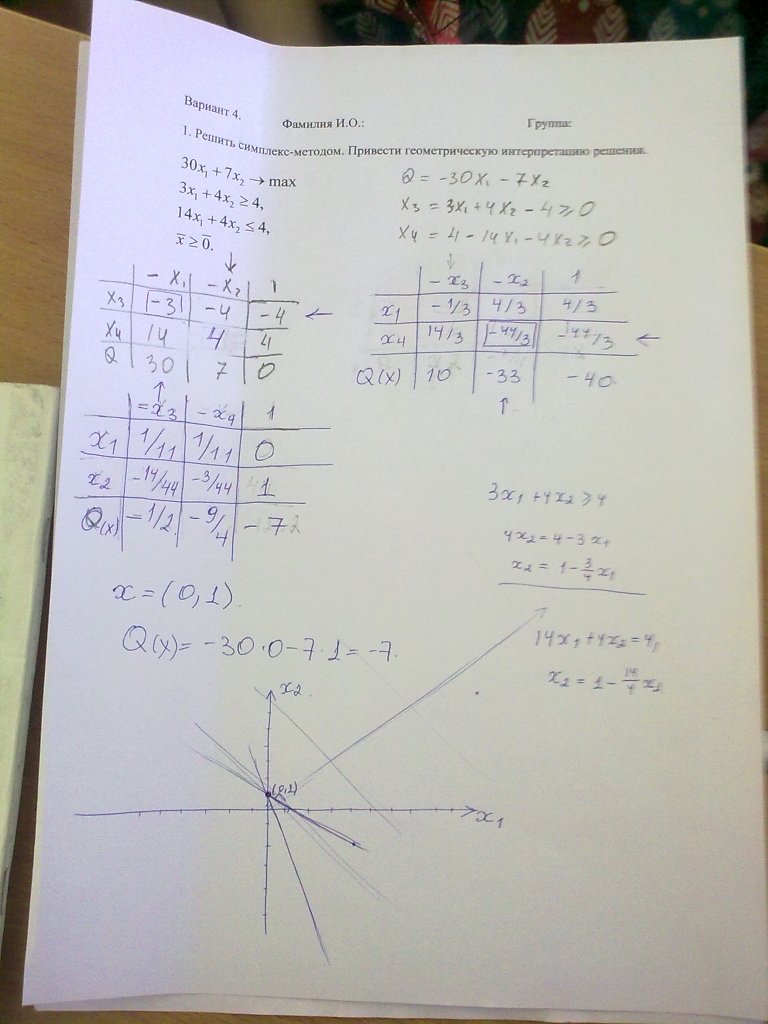 Вариант 4.
Фамилия И.О.: Группа:
1. Решить симплекс-методом. Привести геометрическую интерпретацию решения.
30x₁ + 7x₂ → max
3x₁ + 4x₂ ≥ 4,
14x₁ + 4x₂ ≤ 4,
x̄ ≥ 0̄.
Q = -30x₁ - 7x₂
x₃ = 3x₁ + 4x₂ - 4 ≥ 0
x₄ = 4 - 14x₁ - 4x₂ ≥ 0
-x₁ -x₂ 1
x₃ -3 -4 -4 ←
x₄ 14 4 4
Q 30 7 0
-x₃ -x₂ 1
x₁ -1/3 4/3 4/3
x₄ 14/3 -44/3 -44/3 ←
Q(x) 10 -33 -40
-x₃ -x₄ 1
x₁ 1/11 1/11 0
x₂ -14/44 -3/44 1
Q(x) -1/2 -9/4 -7
x = (0,1).
Q(x) = -30·0 - 7·1 = -7.
3x₁ + 4x₂ ≥ 4
4x₂ = 4 - 3x₁
x₂ = 1 - 3/4 x₁
14x₁ + 4x₂ = 4,
x₂ = 1 - 14/4 x₁
x₂
(0,1)
x₁